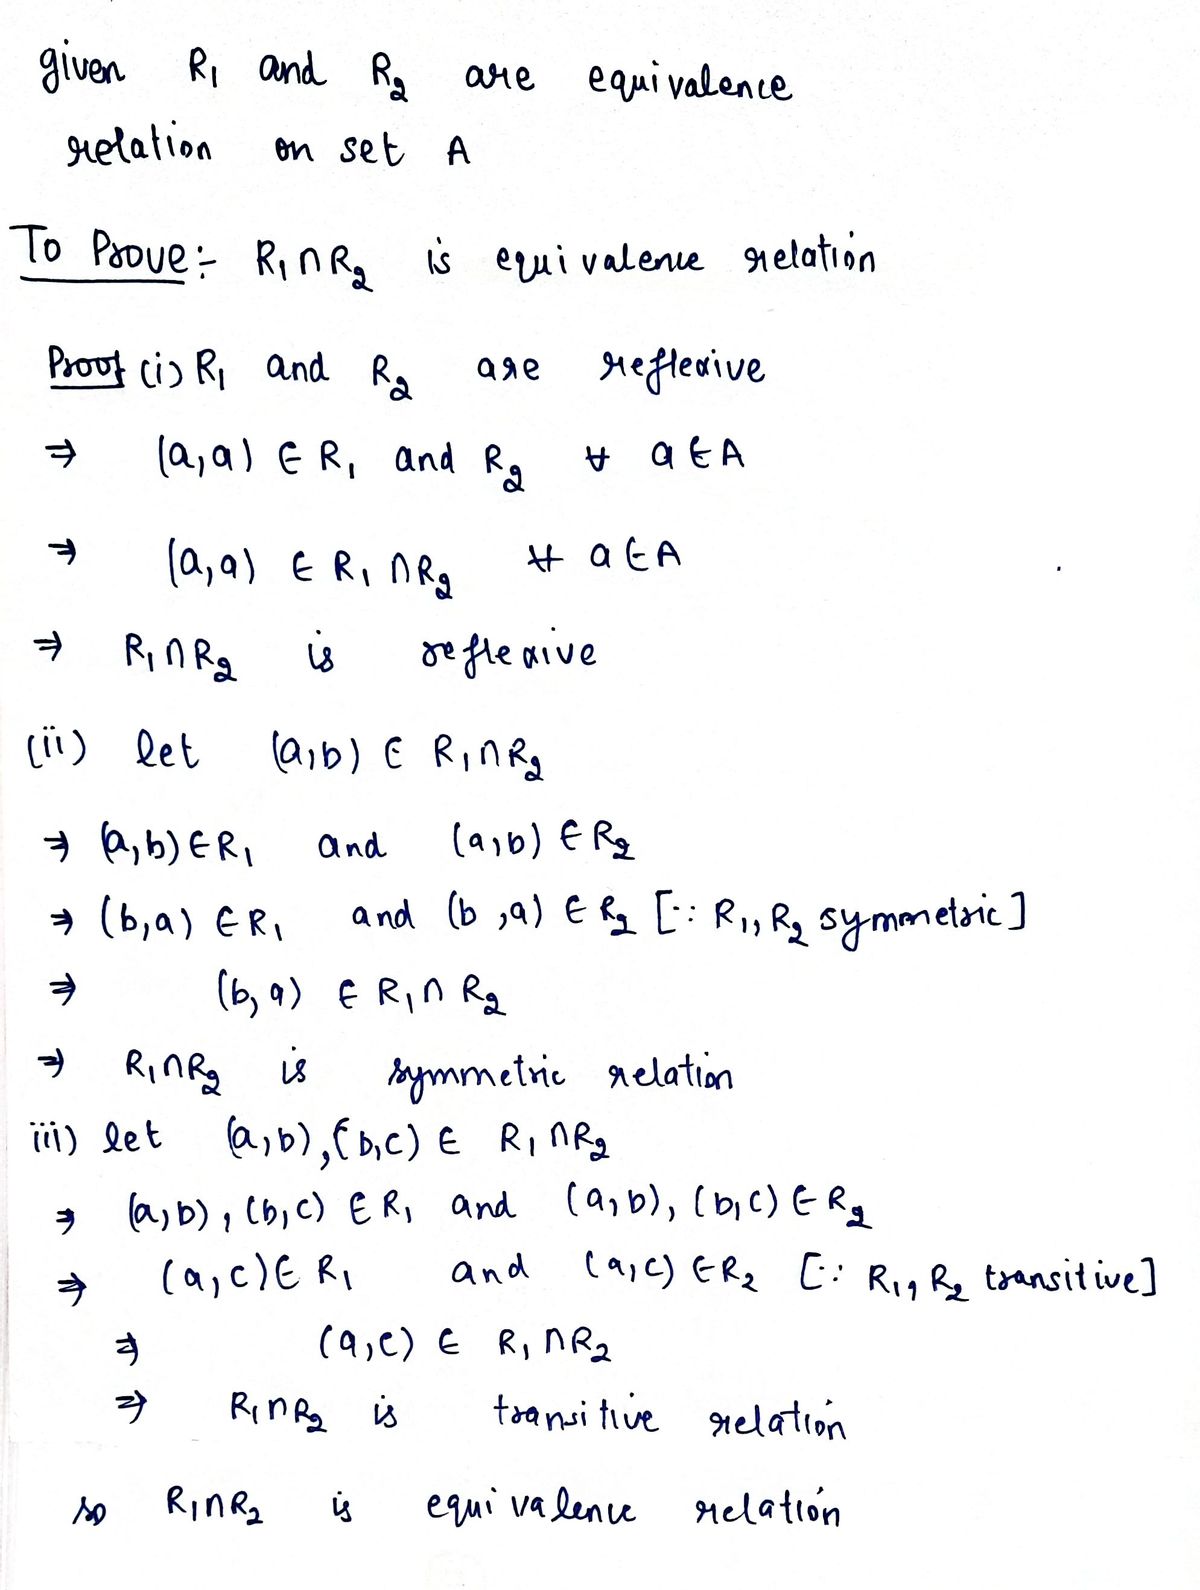 given R₁ and R₂ are equivalence
relation on set A
To Prove:- R₁∩R₂ is equivalence relation
Proof (i) R₁ and R₂ are reflexive
⇒ (a,a) ∈ R₁ and R₂ ∀ a∈A
⇒ (a,a) ∈ R₁∩R₂ ∀ a∈A
⇒ R₁∩R₂ is reflexive
(ii) let (a,b) ∈ R₁∩R₂
⇒ (a,b)∈R₁ and (a,b) ∈R₂
⇒ (b,a) ∈R₁ and (b,a) ∈ R₂ [∵ R₁, R₂ symmetric]
⇒ (b,a) ∈ R₁∩R₂
⇒ R₁∩R₂ is symmetric relation
iii) let (a,b),(b,c) ∈ R₁∩R₂
⇒ (a,b), (b,c) ∈R₁ and (a,b), (b,c) ∈R₂
⇒ (a,c)∈R₁ and (a,c) ∈R₂ [∵ R₁, R₂ transitive]
⇒ (a,c) ∈ R₁∩R₂
⇒ R₁∩R₂ is transitive relation
so R₁∩R₂ is equivalence relation